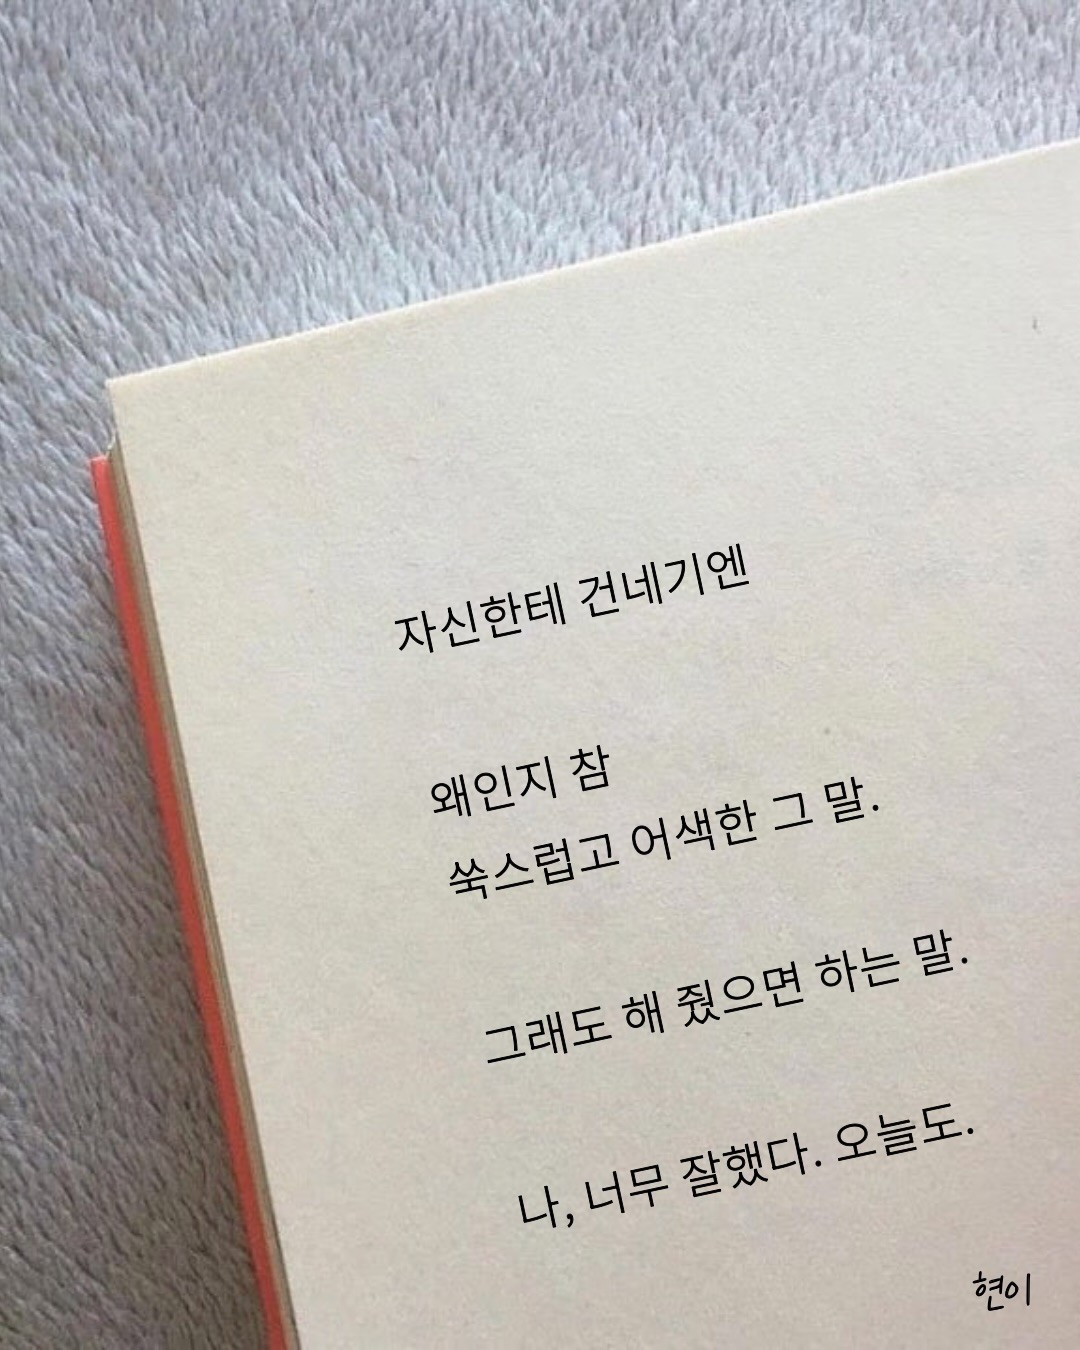 자신한테 건네기엔
왜인지 참
쑥스럽고 어색한 그 말.
그래도 해 줬으면 하는 말.
나, 너무 잘했다. 오늘도.
현이